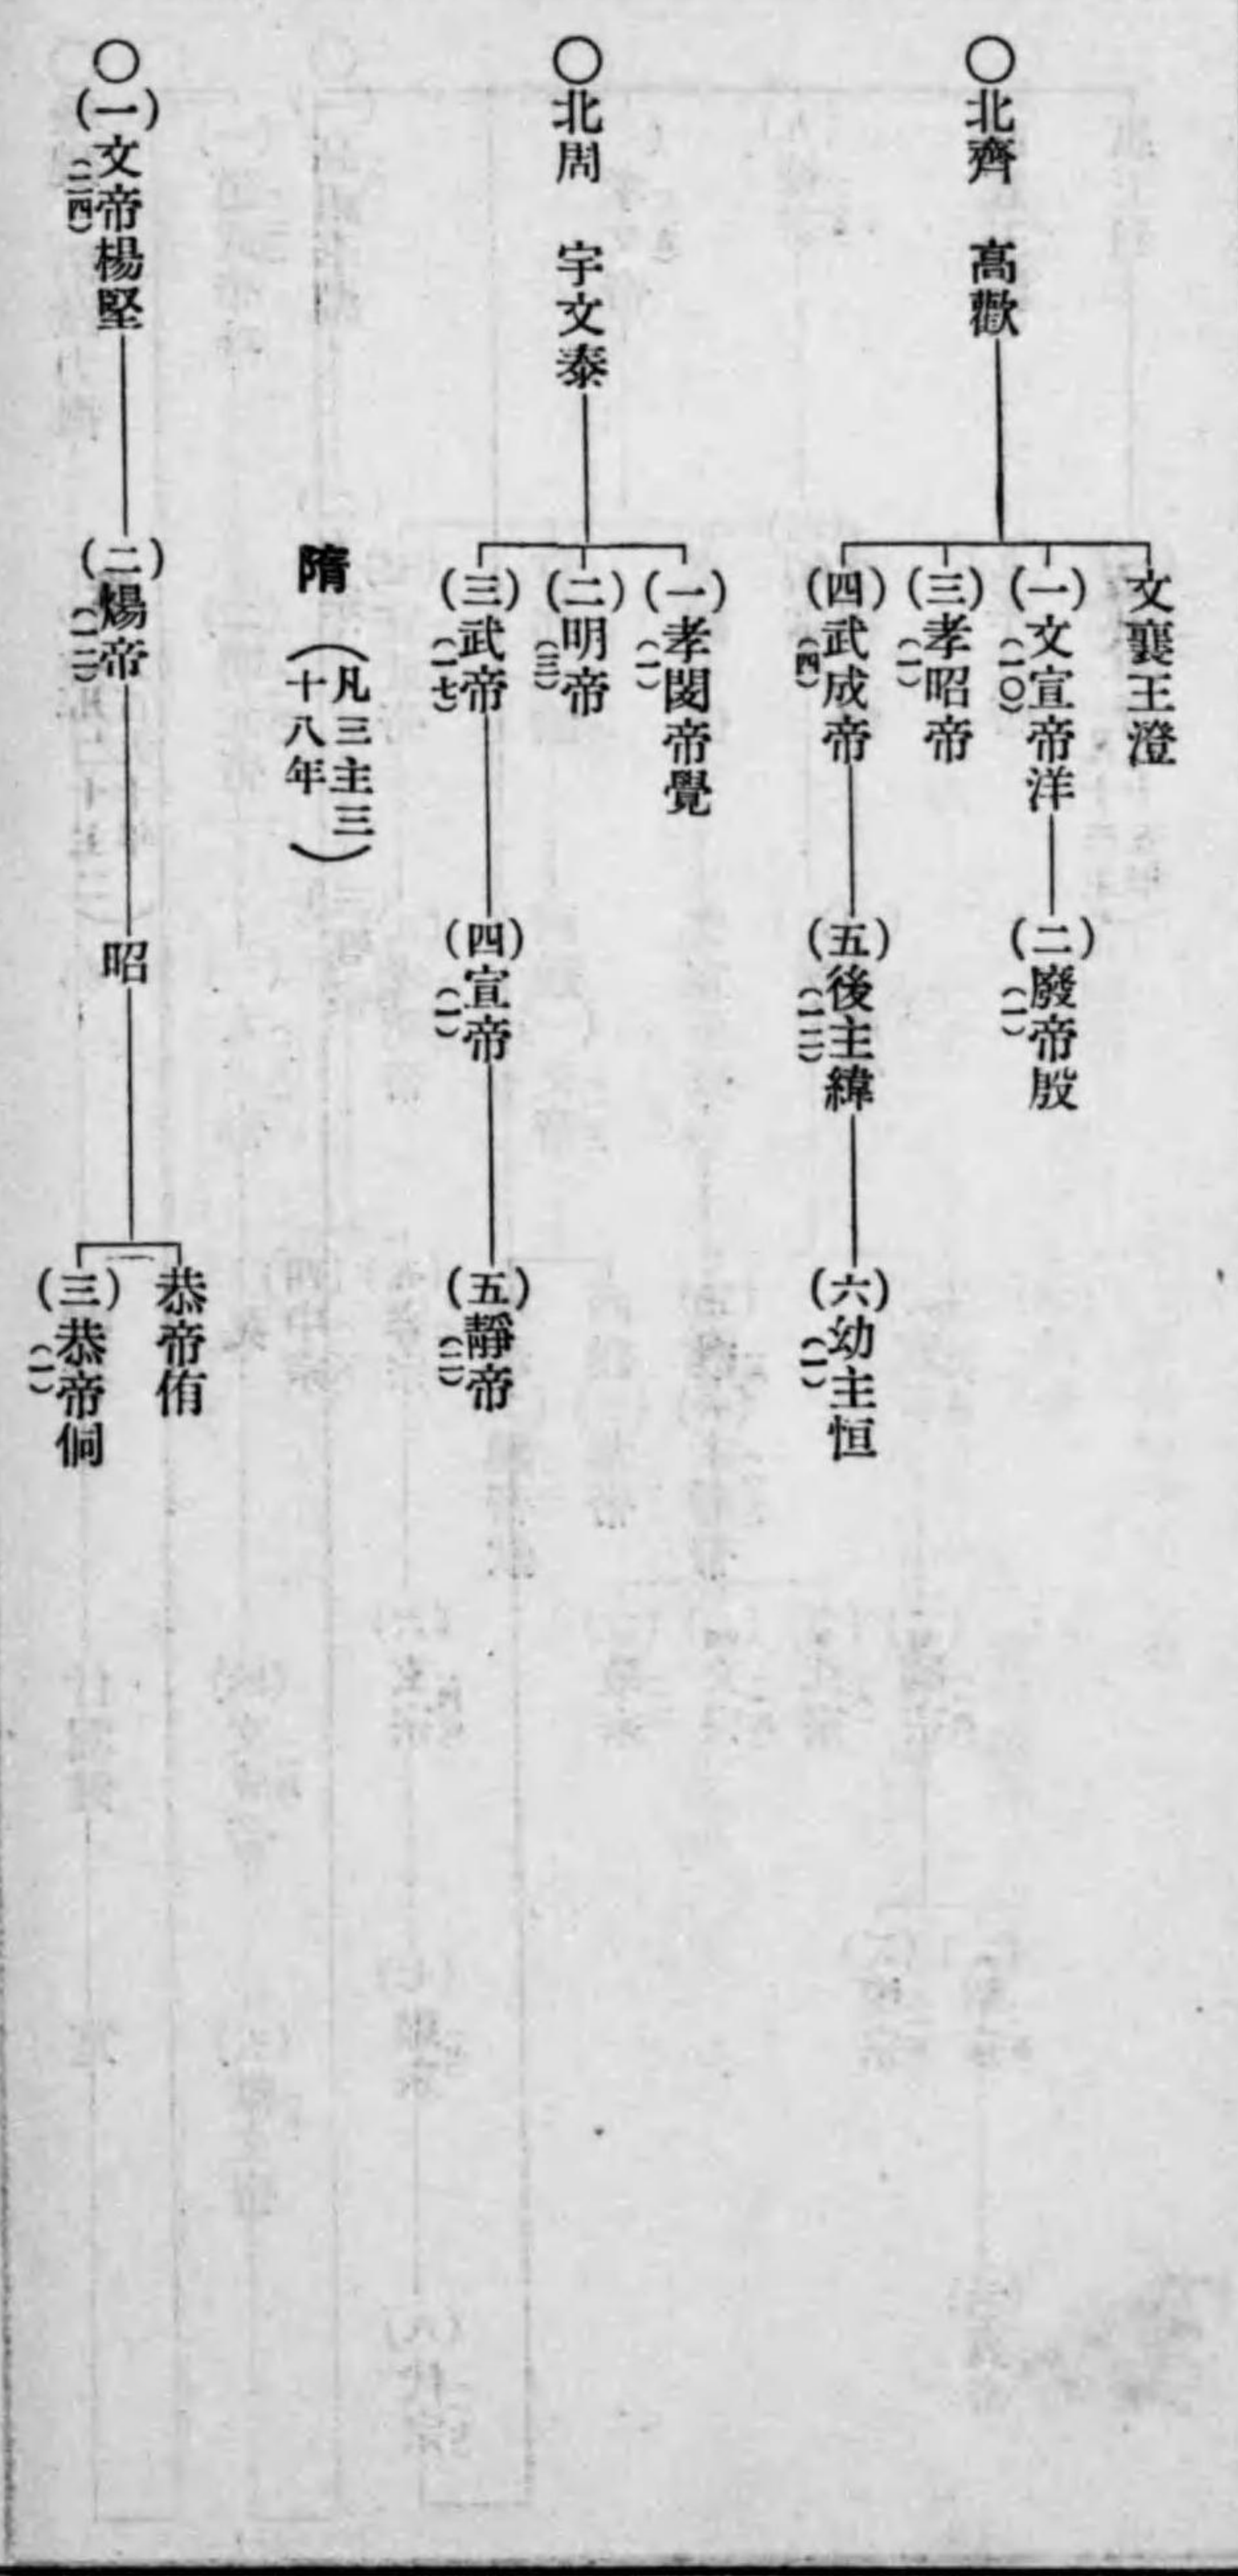 〇北齊　高歡
文襄王澄
(一)文宣帝洋
(一〇)
(二)廢帝殷
(一)
(三)孝昭帝
(一)
(四)武成帝
(四)
(五)後主緯
(一二)
(六)幼主恒
(一)
〇北周　宇文泰
(一)孝閔帝覺
(一)
(二)明帝
(三)
(三)武帝
(一七)
(四)宣帝
(一)
(五)靜帝
(二)
隋
(凡三主三
十八年)
〇(一)文帝楊堅
(二四)
(二)煬帝
(一二)
昭
恭帝侑
(三)恭帝侗
(一)